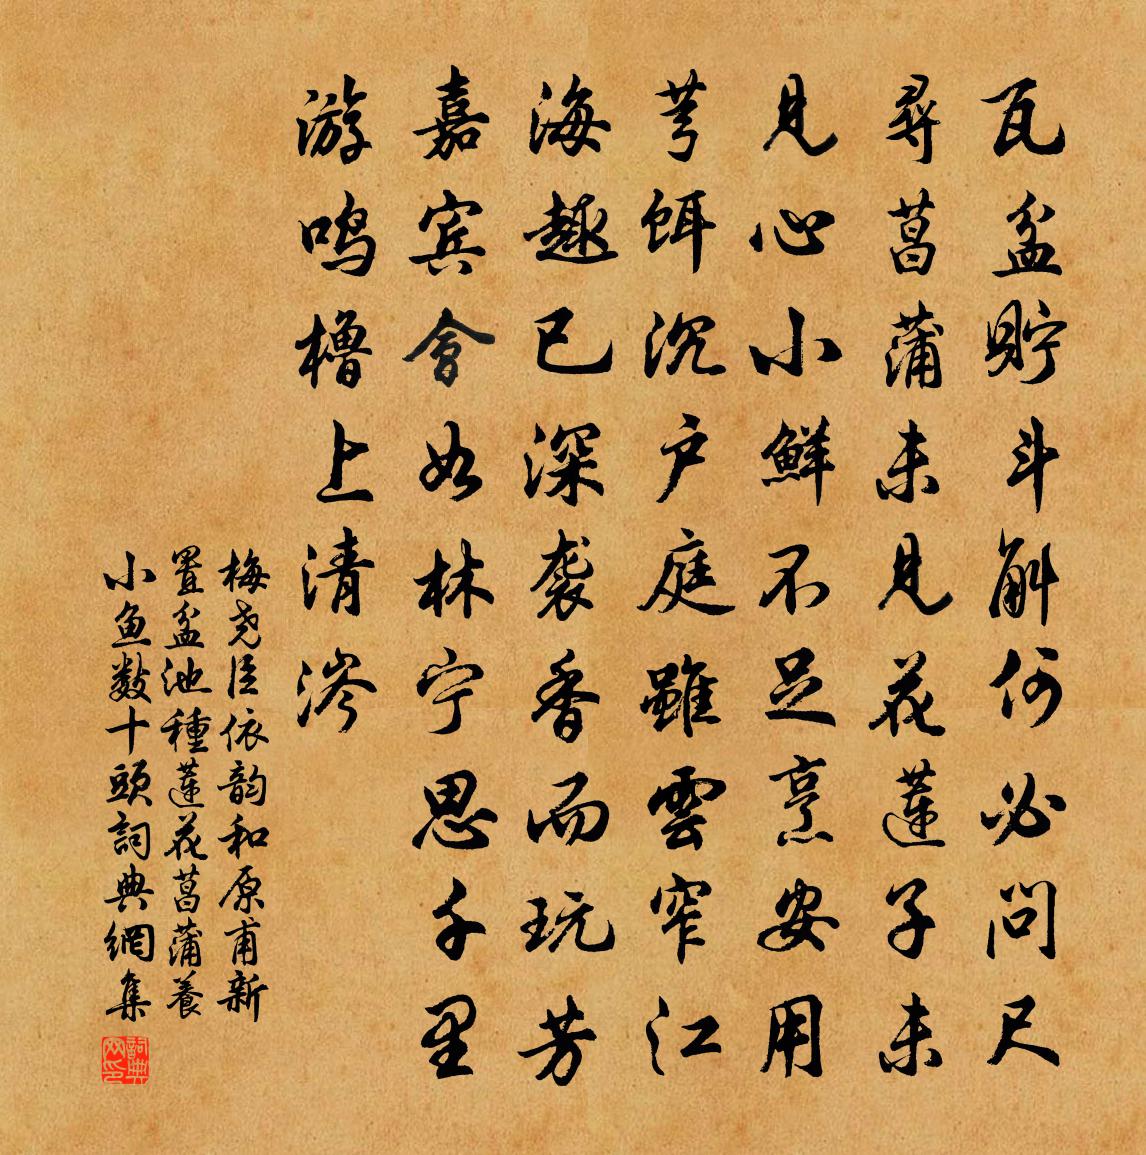 瓦盆貯斗斛何必問尺
尋菖蒲未見花蓮子未
見心小鮮不足烹安用
芎餌沉户庭雖雲窄江
海趣已深袭香而玩芳
嘉宾會如林宁思千里
游鸣櫓上清涔
梅尧臣依韵和原甫新
置盆池種蓮花菖蒲養
小鱼數十頭詞典網集
詞典網印